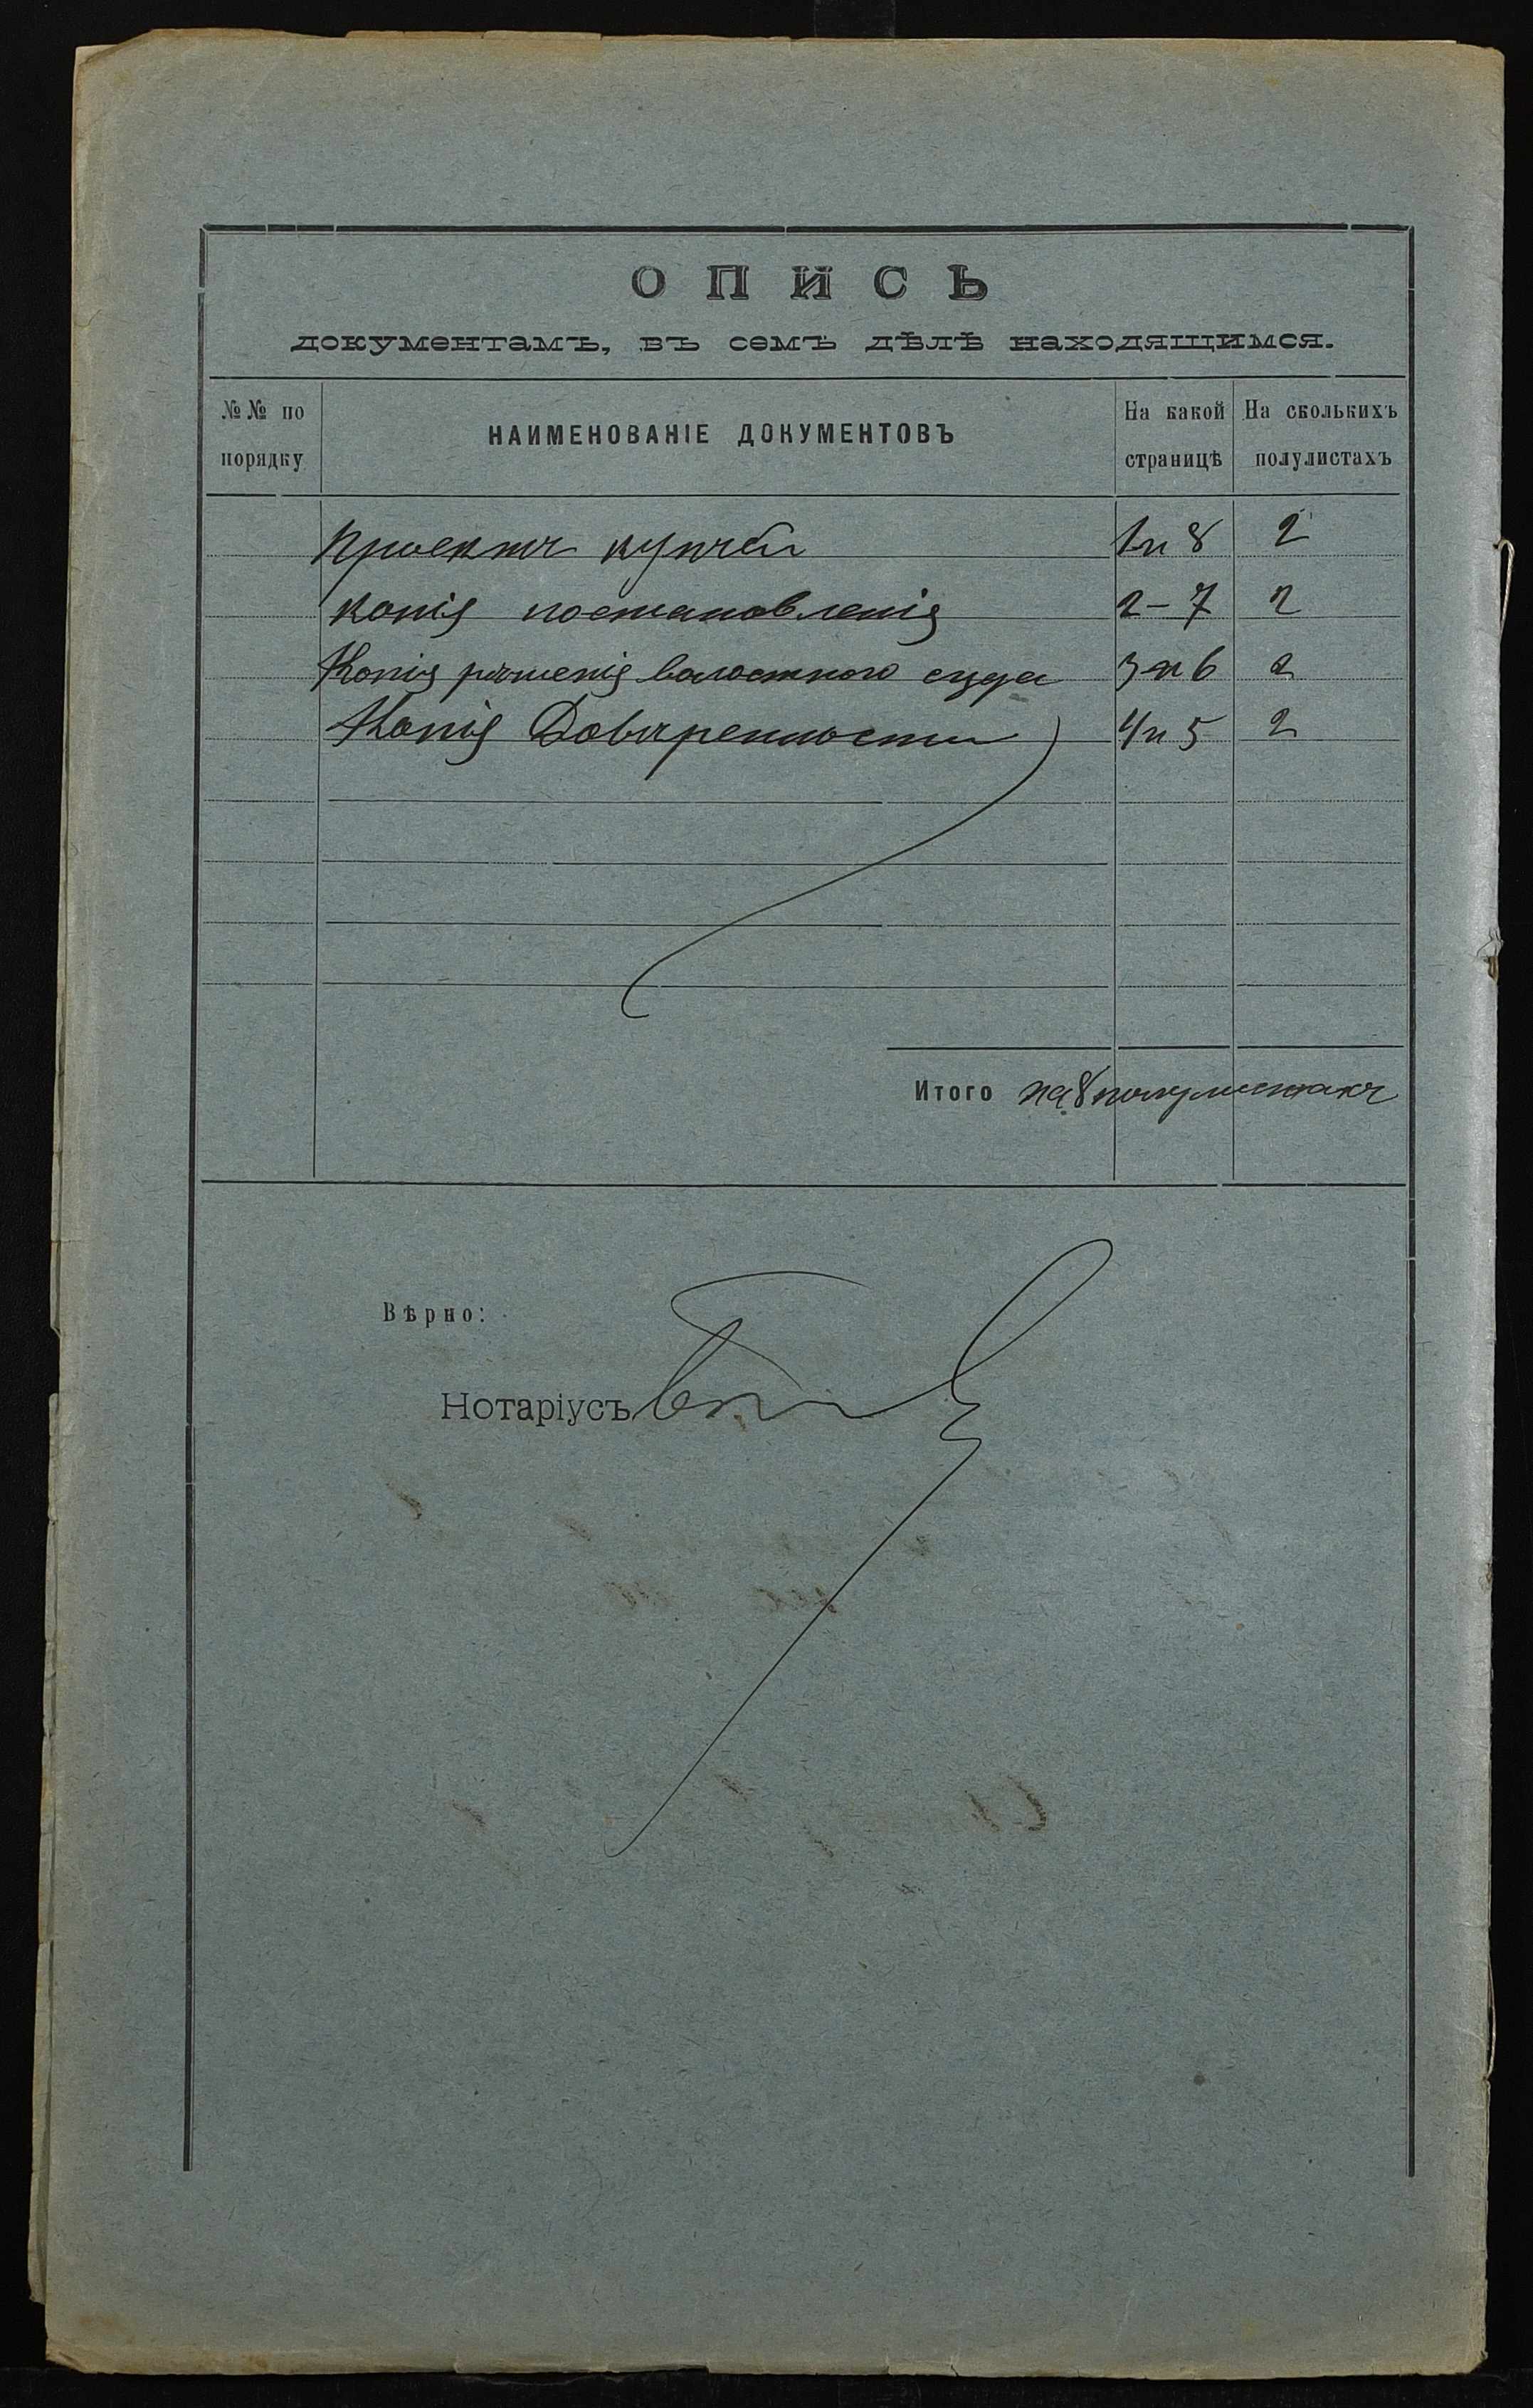 ОПИСЬ
документамъ, въ семъ дѣлѣ находящимся.
№№ по порядку
НАИМЕНОВАНІЕ ДОКУМЕНТОВЪ
На какой страницѣ
На сколькихъ полулистахъ
Проектъ купчей 1 и 8 2
Копія постановленія 2-7 2
Копія рѣшенія волостного суда 3 и 6 2
Копія Довѣренности 4 и 5 2
Итого на 8 полулистахъ
Вѣрно:
Нотаріусъ